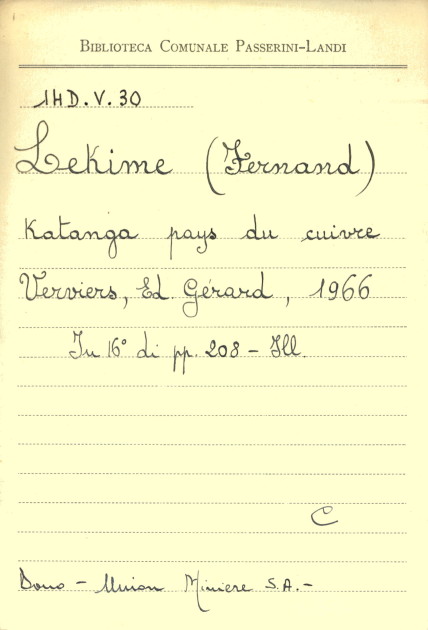 BIBLIOTECA COMUNALE PASSERINI-LANDI
1HD.V.30
Lekime (Fernand)
Katanga pays du cuivre
Verviers, Ed. Gérard, 1966
In 16° di pp. 208 - Ill.
C
Dono - Union Miniere S.A. -